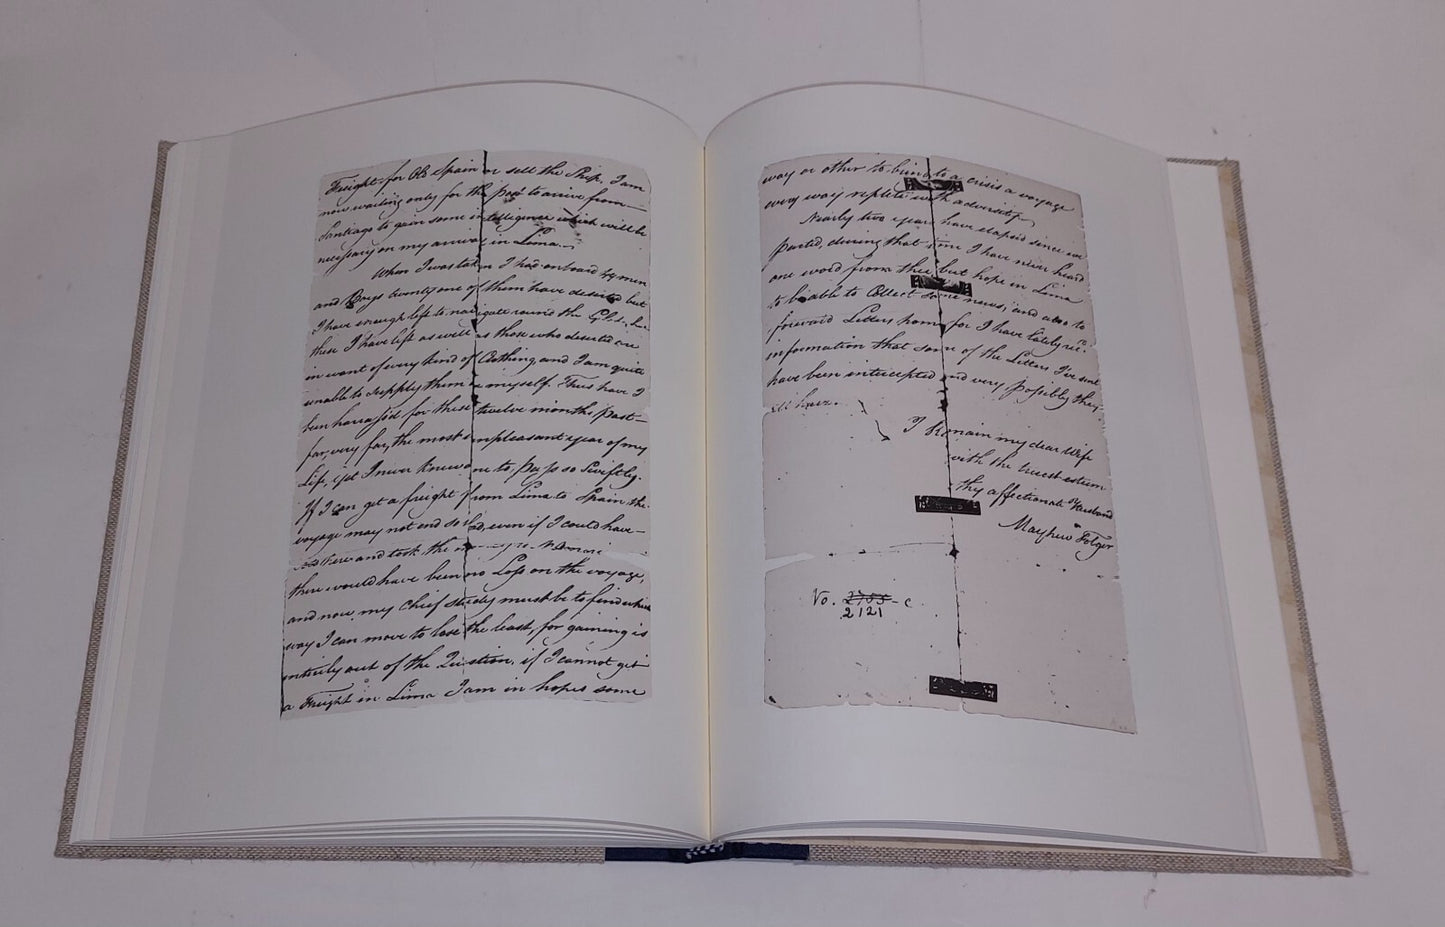 Freight for Old Spain or sell the Ship, I am
now waiting only for the post to arrive from
Santiago to gain some intelligence which will be
necessary on my arrival in Lima.
When I was taken I had on board 49 men
and Boys twenty one of them have deserted but
I have enough left to navigate round the Globe, but
these I have left as well as those who deserted are
in want of every kind of Clothing, and I am quite
unable to supply them or myself. Thus have I
been harrassed for these twelve months past
far, very far, the most unpleasant year of my
Life, yet I never knew one to pass so swiftly.
If I can get a freight from Lima to Spain the
voyage may not end so bad, even if I could have
there and took the
there would have been no Loss on the voyage,
and now my chief study must be to find which
way I can move to lose the least, for gaining is
entirely out of the Question, if I cannot get
a Freight in Lima I am in hopes some
way or other to bring to a crisis a voyage
every way replete with adversity.
Nearly two years have elapsed since we
parted, during that time I have never heard
one word from thee but hope in Lima
to be able to Collect some news, and also to
forward Letters home, for I have lately re.
information that some of the Letters I've sent
have been intercepted and very possibly they
all have.
I Remain my dear Wife
with the esteem
thy affectionate Husband
Mayhew Folger
Vo. 2755 - c.
2121